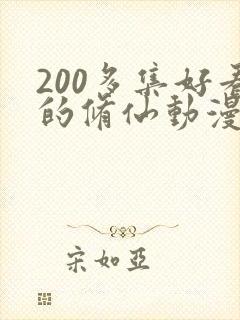 200多集好看
的脩仙動漫
宋如亞